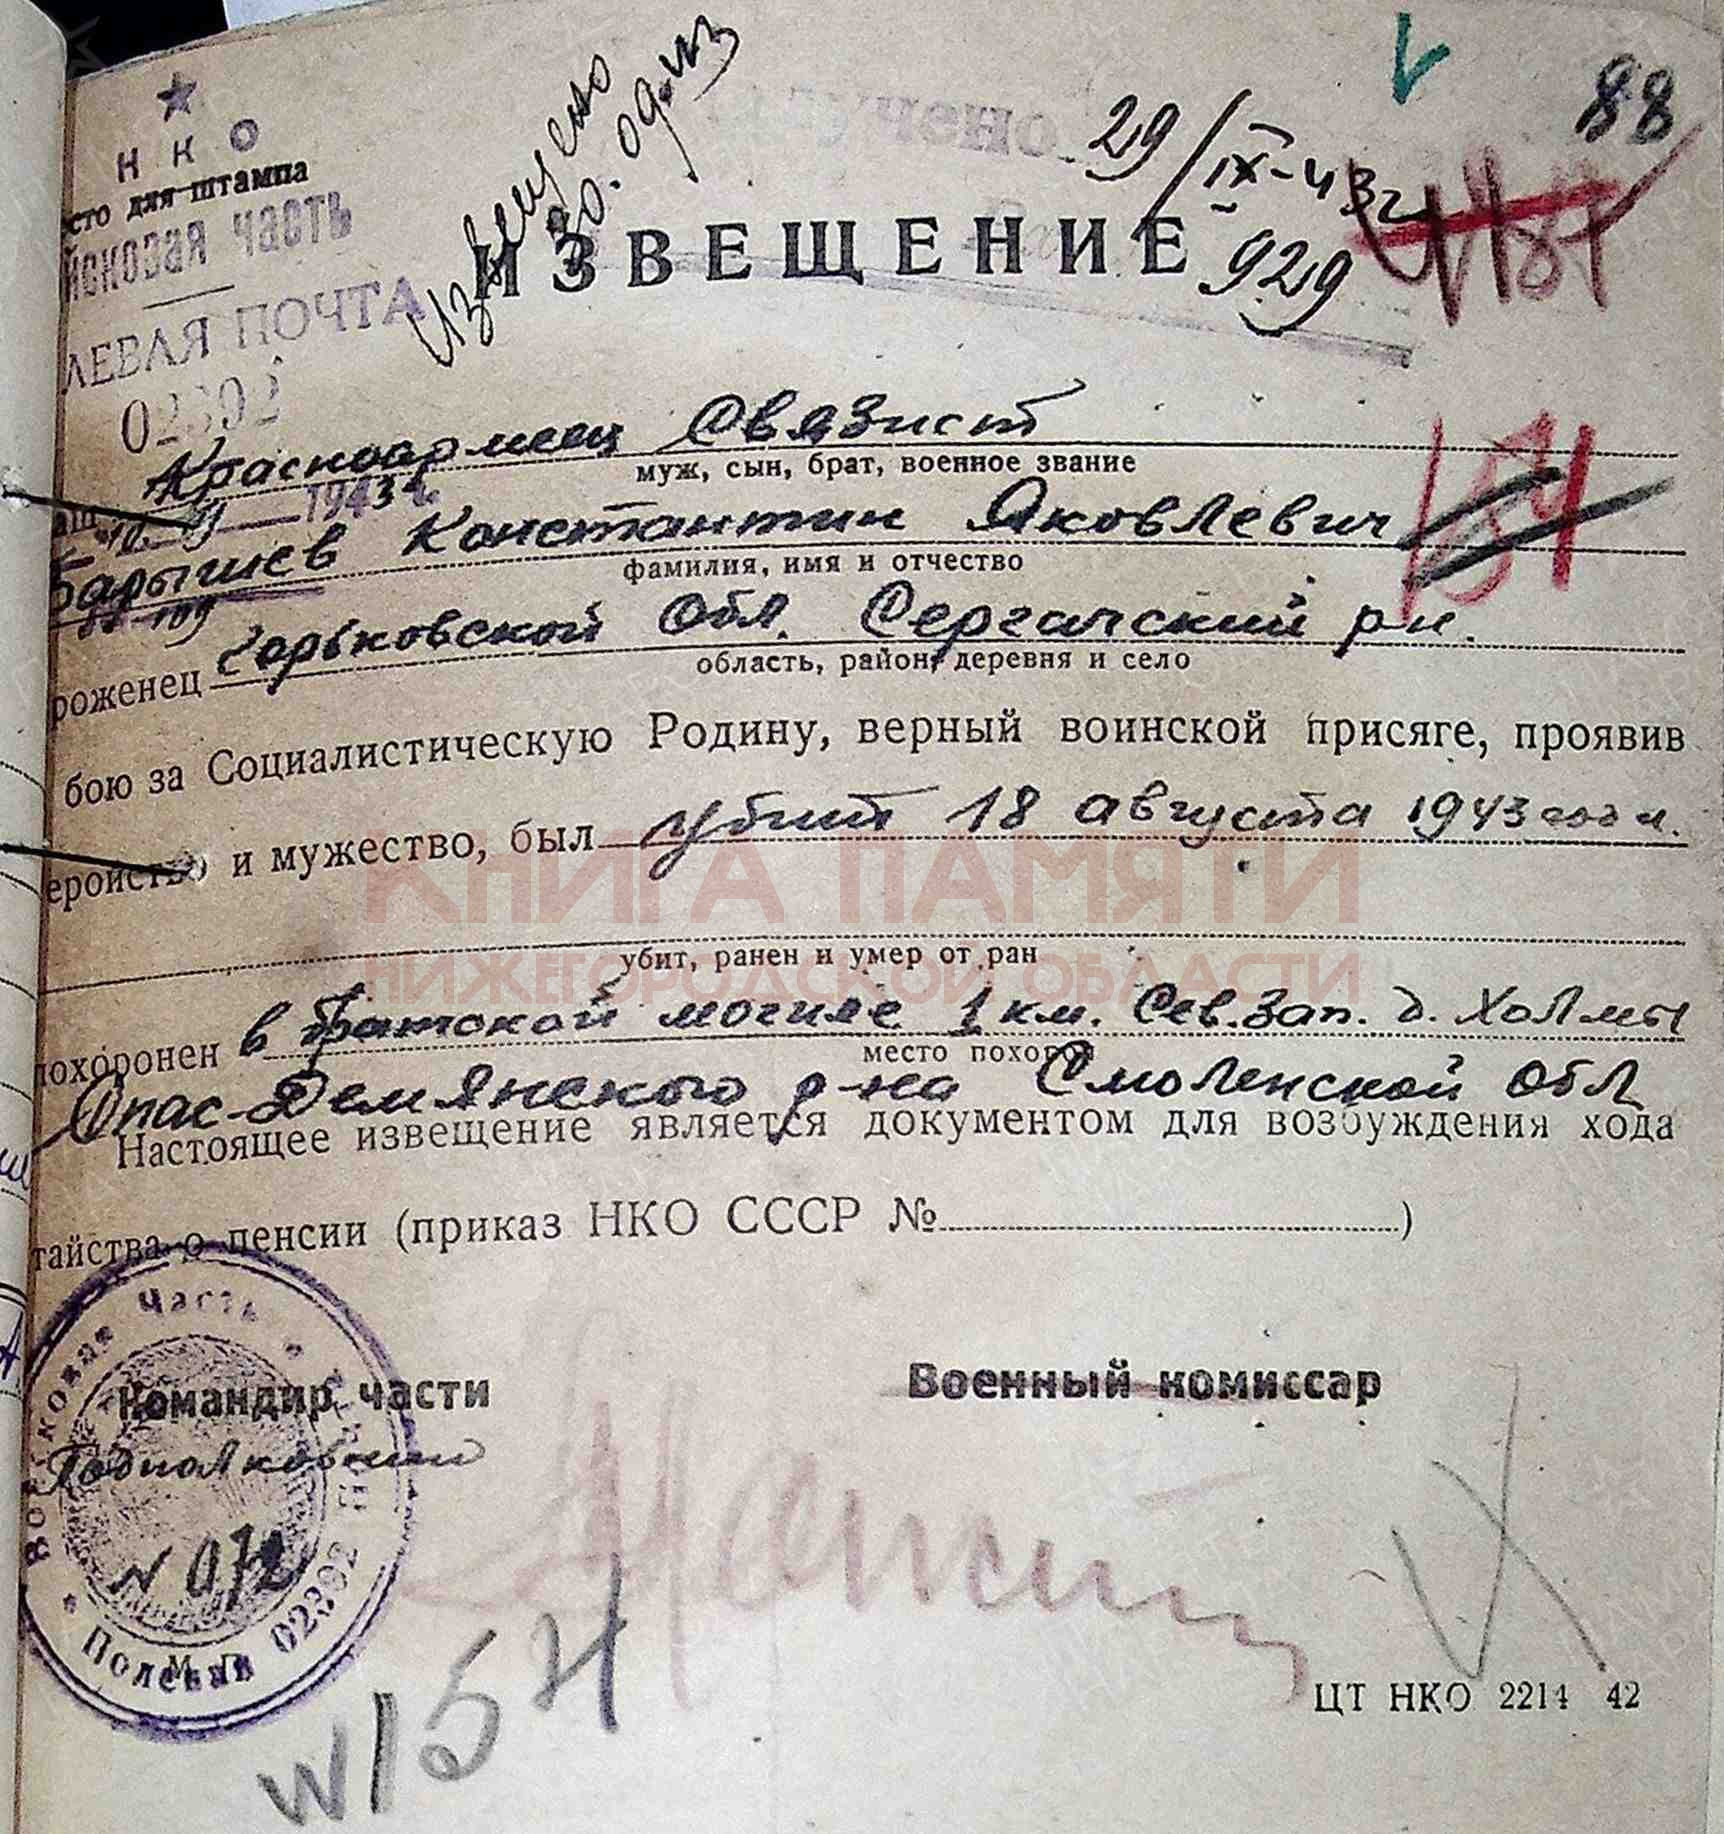 88
Н К О
сто для штампа
йсковая часть
ЛЕВАЯ ПОЧТА
02392
Извещено
30.
29/IX-43г
ИЗВЕЩЕНИЕ 929
Красноармеец Связист
муж, сын, брат, военное звание
1943 г.
Барышев Константин Яковлевич
фамилия, имя и отчество
154
роженец Горьковской Обл. Сергачский р-н.
область, район, деревня и село
бою за Социалистическую Родину, верный воинской присяге, проявив
еройство и мужество, был убит 18 августа 1943 года.
КНИГА ПАМЯТИ
убит, ранен и умер от ран
НИЖЕГОРОДСКОЙ ОБЛАСТИ
похоронен в братской могиле 1 км. Сев.Зап. д. Холмы
место похорон
Спас-Демянского р-на Смоленской обл
Настоящее извещение является документом для возбуждения хода
тайства о пенсии (приказ НКО СССР №)
Командир части Военный комиссар
Войсковая часть
Полевая почта 02392
М П
N 154
ЦТ НКО 2214 42